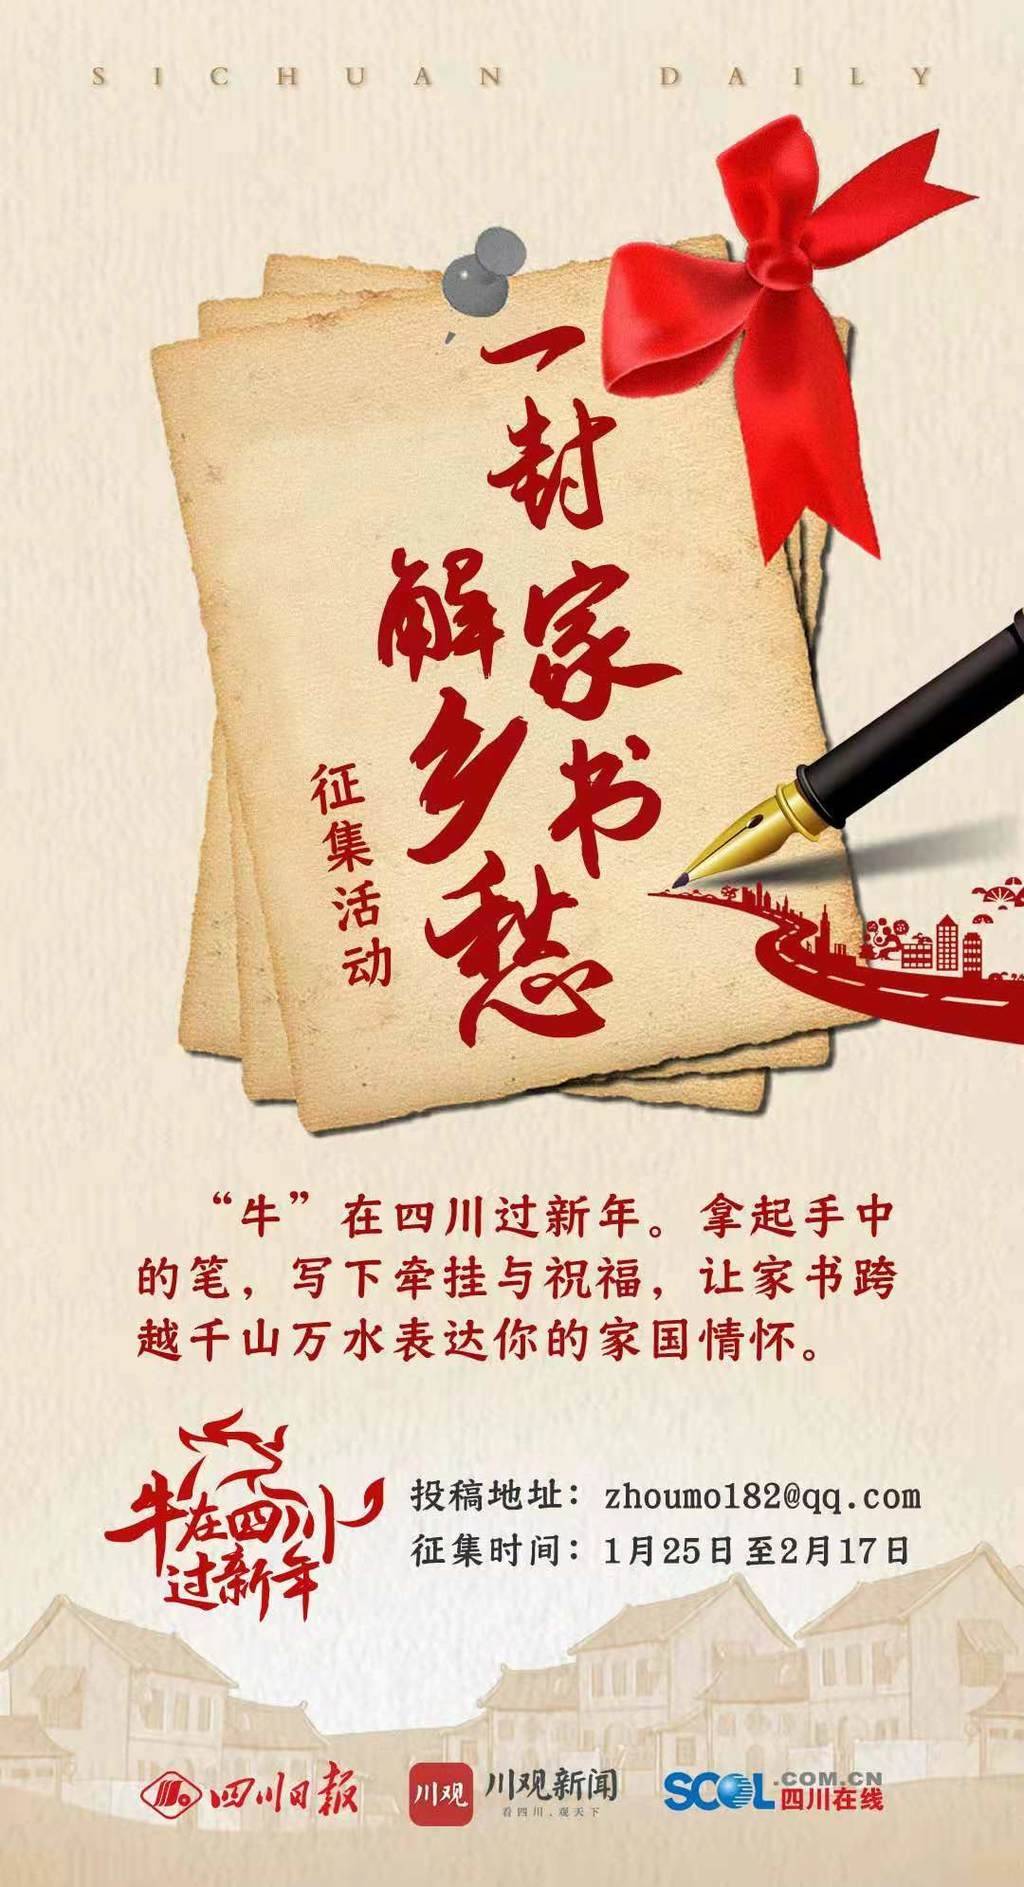 SICHUAN DAILY
一封家书
解乡愁
征集活动
“牛”在四川过新年。拿起手中
的笔，写下牵挂与祝福，让家书跨
越千山万水表达你的家国情怀。
牛在四川
过新年
投稿地址：zhoumo182@qq.com
征集时间：1月25日至2月17日
四川日报
川观
川观新闻
看四川，观天下
SCOL.COM.CN
四川在线